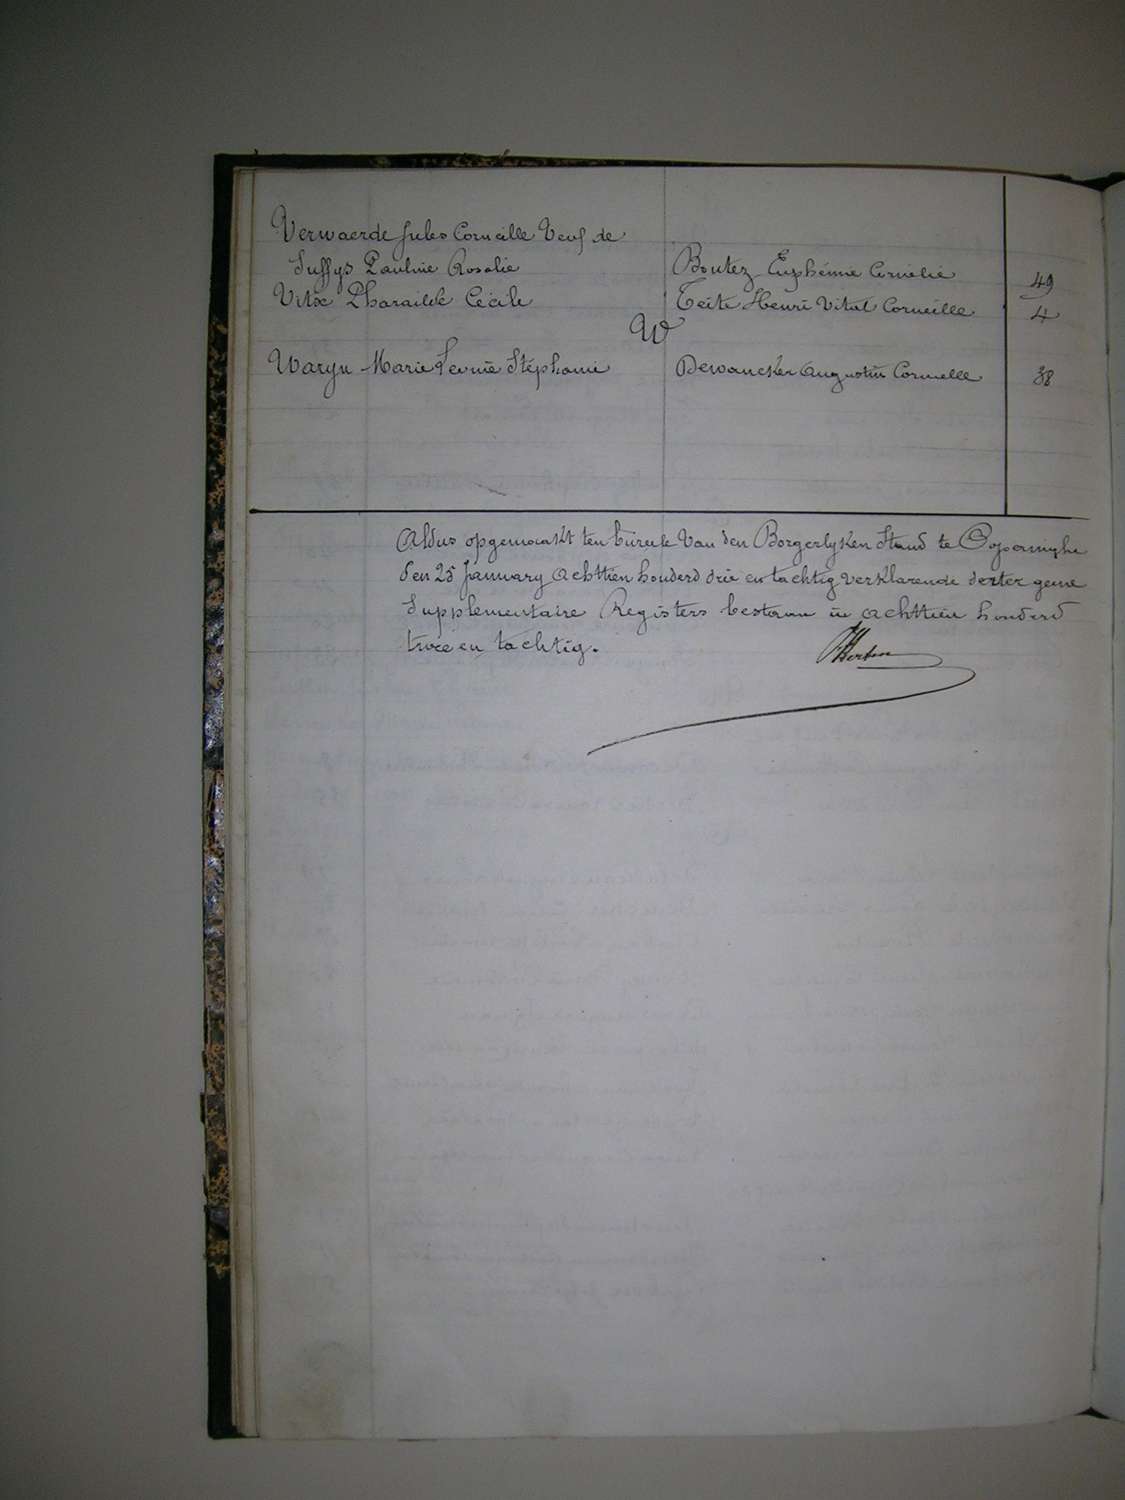 Verwaerde Jules Corneille Veuf de
Suffys Pauline Rosalie Boutez Euphémie Cornélie 49
Vitse Pharailde Cécile Teite Henri Vital Corneille 4
W
Waryn Marie Leonie Stéphanie Dewancker Augustin Corneille 38
Aldus opgemaakt ten bureele van den Borgerlyken Stand te Poperinghe
den 25 January achttien honderd drie en tachtig verklarende dezer geene
Supplementaire Registers bestaan in achttien honderd
twee en tachtig.